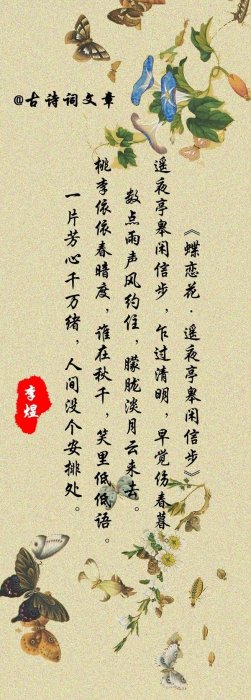 @古诗词文章
《蝶恋花·遥夜亭皋闲信步》
遥夜亭皋闲信步，乍过清明，早觉伤春暮
数点雨声风约住，朦胧淡月云来去。
桃李依依春暗度，谁在秋千，笑里低低语。
一片芳心千万绪，人间没个安排处。
李煜